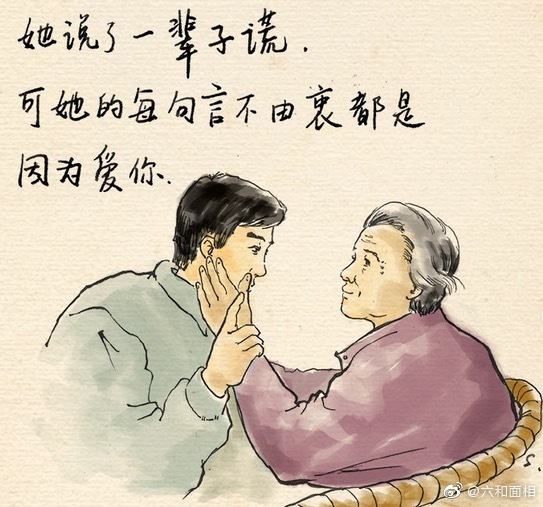 她说了一辈子谎.
可她的每句言不由衷都是
因为爱你.
S.
@六和面相